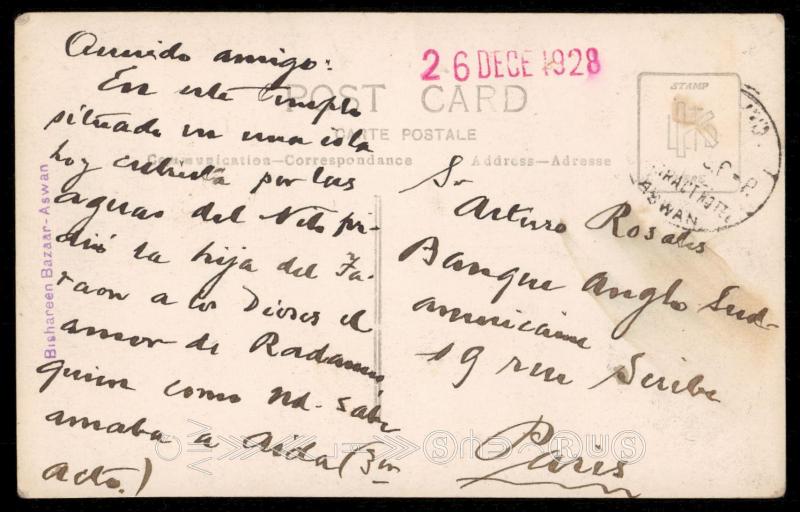 Querido amigo:
En este templo
situado en una isla
hoy cubierta por las
aguas del Nilo pi-
dió la hija del Fa-
raon a los Dioses el
amor de Radamés,
quien como Ud. sabe
amaba a Aida (3er
acto.)
26 DECE 1928
POST CARD
CARTE POSTALE
Communication-Correspondance
Address-Adresse
STAMP
CATARACT HOTEL
ASWAN
Sr
Arturo Rosales
Banque Anglo Sud-
americaine
19 rue Scribe
Paris
Bishareen Bazaar-Aswan